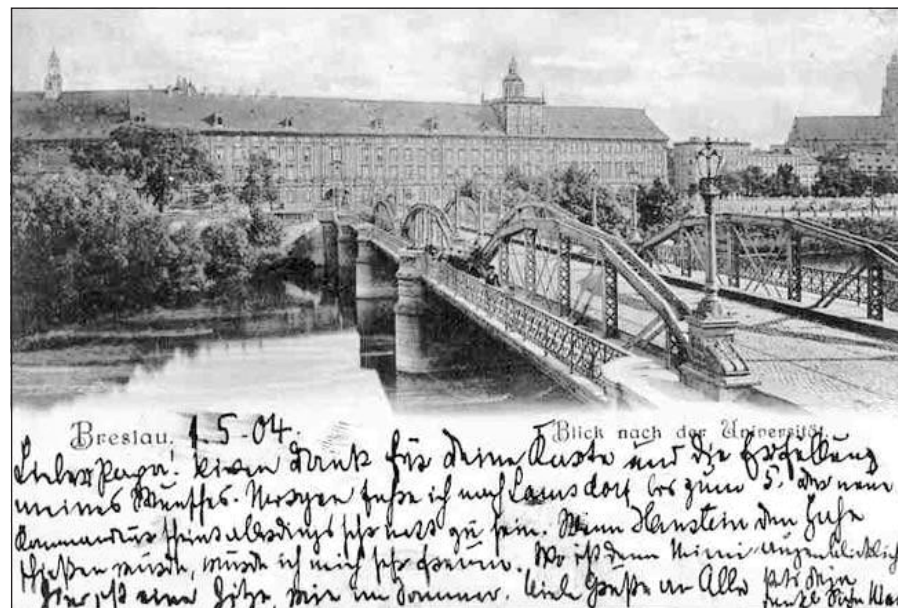 Breslau. 1.5.04. Blick nach der Universität.
Lieber Papa! Vielen Dank für Deine Karte und die Erfüllung
meines Wunsches. Morgen fahre ich nach Lamsdorf bis zum 5. Der neue
Kommandeur scheint allerdings sehr nett zu sein. Wenn Hanstein den
schießen würde, würde ich mich sehr freuen. Wo ist denn Mimi augenblicklich
Hier ist eine Hitze, wie im Sommer. Viele Grüße an Alle stets Dein